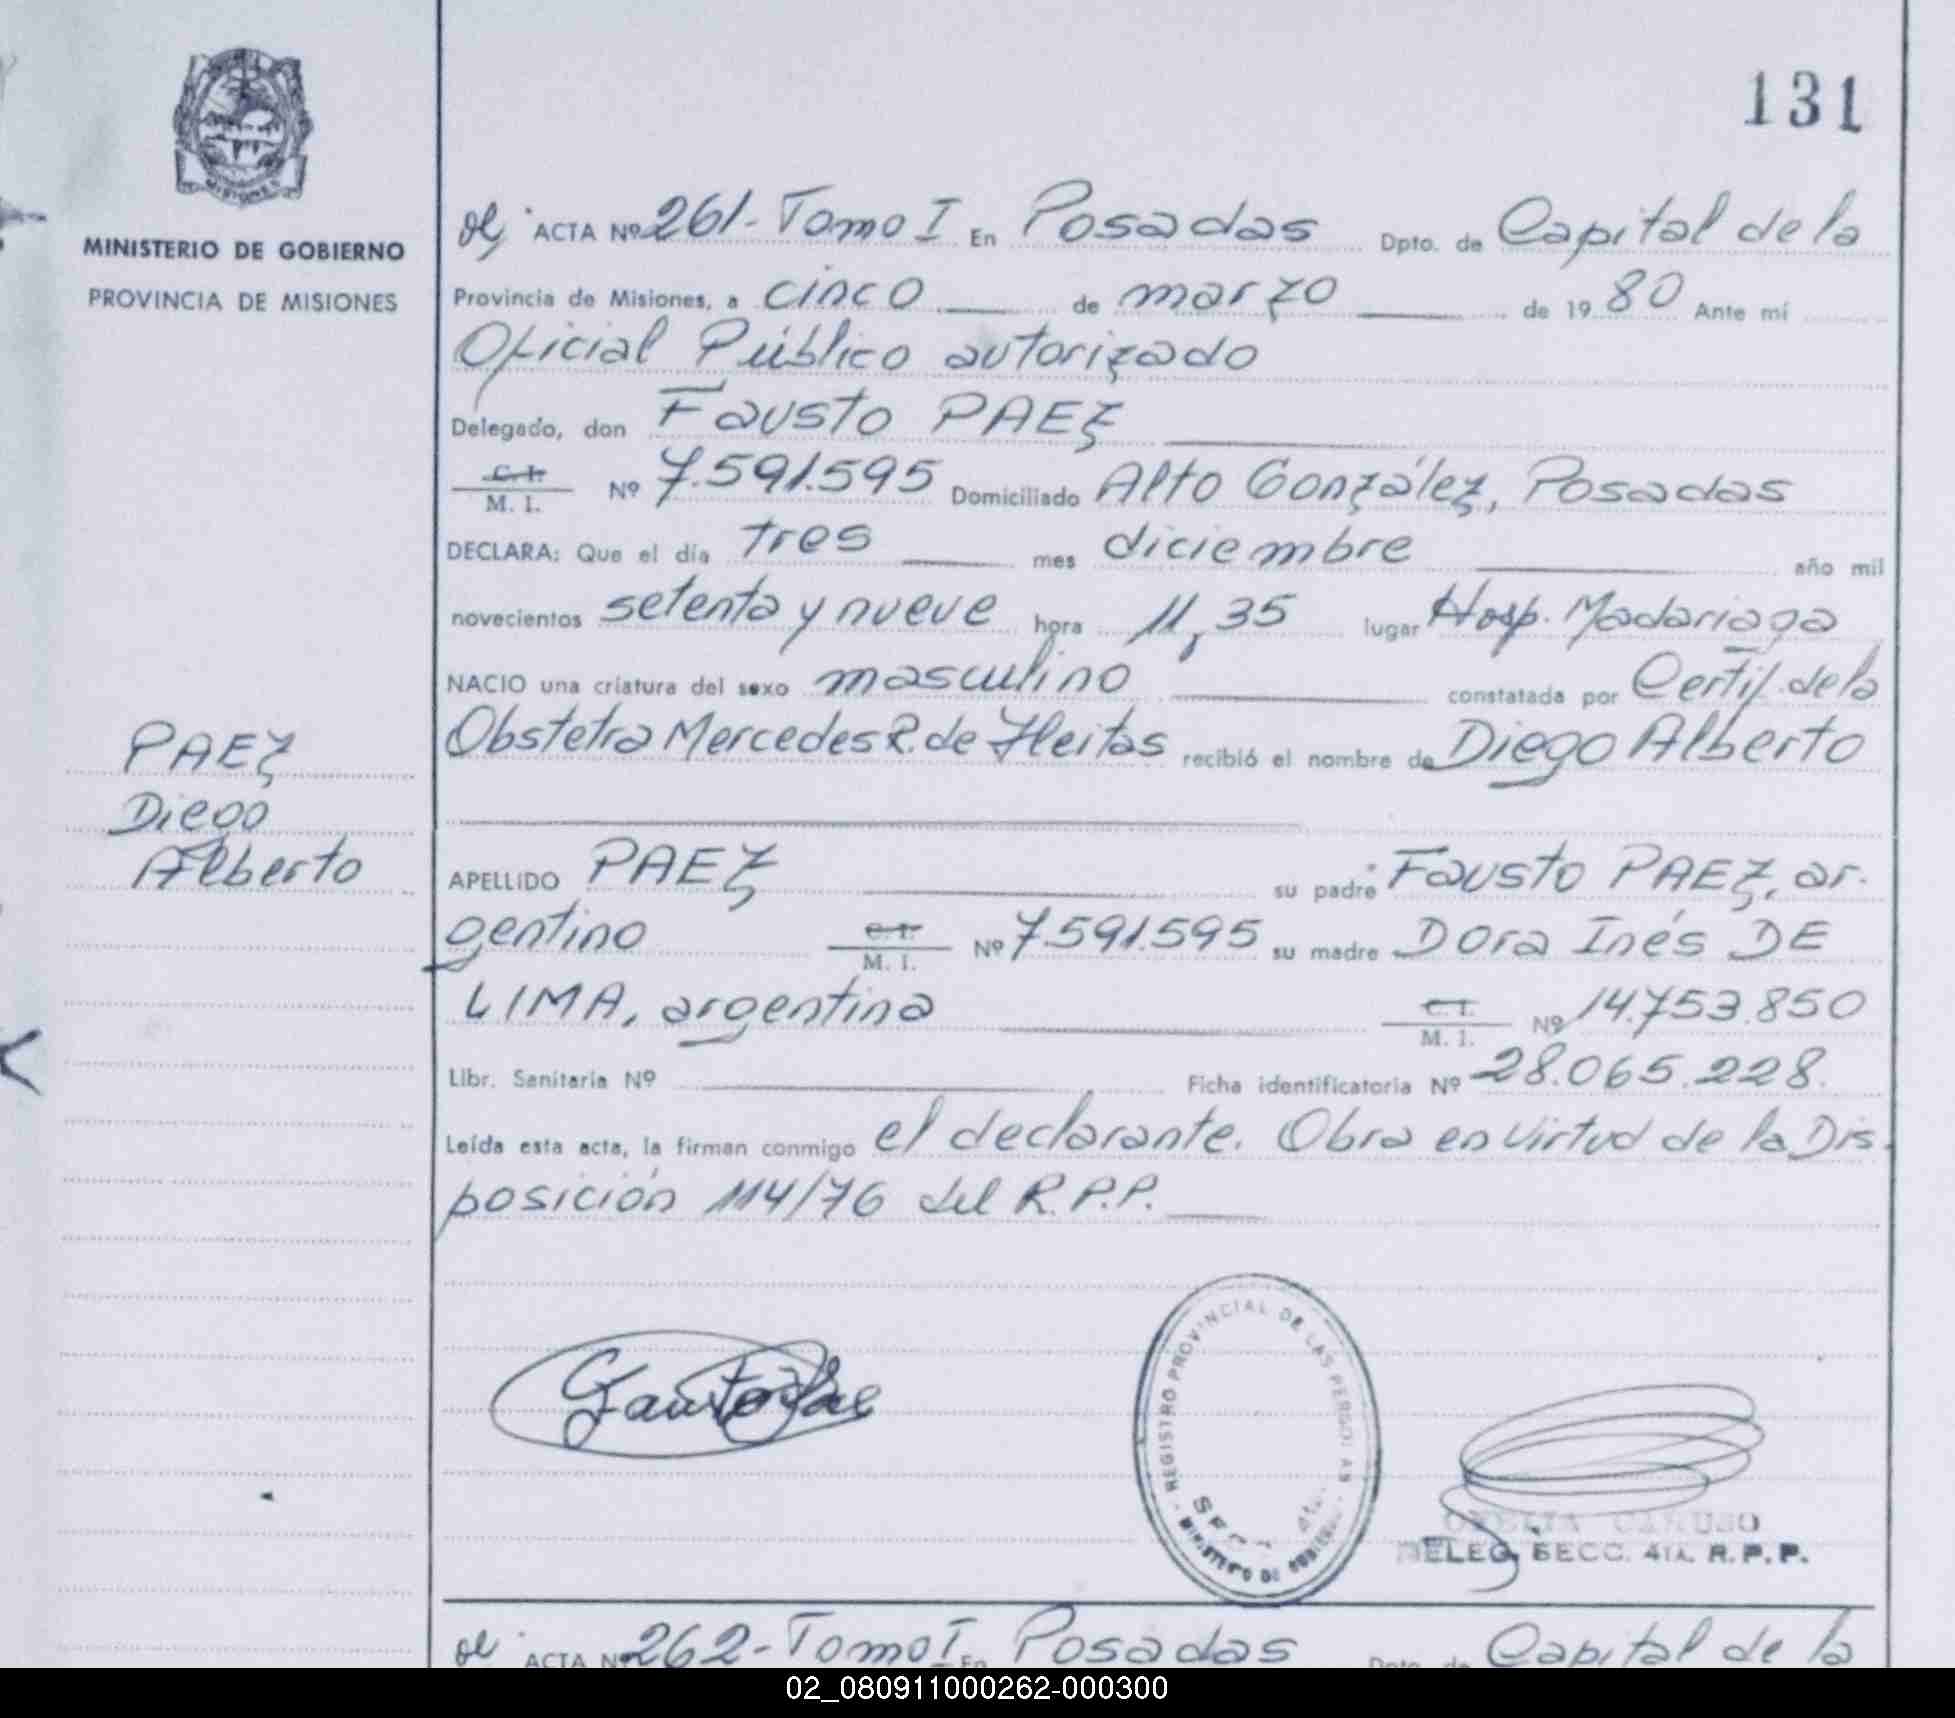 131
MISIONES
MINISTERIO DE GOBIERNO
PROVINCIA DE MISIONES
ACTA Nº 261-Tomo I En Posadas Dpto. de Capital de la
Provincia de Misiones, a cinco de marzo de 1980 Ante mí
Oficial Público autorizado
Delegado, don Fausto PAEZ
C. I.
M. I. Nº 7.591.595 Domiciliado Alto González, Posadas
DECLARA: Que el día tres mes diciembre año mil
novecientos setenta y nueve hora 11,35 lugar Hosp. Madariaga
NACIO una criatura del sexo masculino constatada por Certif. de la
Obstetra Mercedes R. de Fleitas recibió el nombre de Diego Alberto
PAEZ
Diego
Alberto
APELLIDO PAEZ su padre Fausto PAEZ, ar-
gentino C. I. M. I. Nº 7.591.595 su madre Dora Inés DE
LIMA, argentina C. I. M. I. Nº 14.753.850
Libr. Sanitaria Nº Ficha identificatoria Nº 28.065.228.
Leída esta acta, la firman conmigo el declarante. Obra en virtud de la Dis-
posición 114/76 del R.P.P.
REGISTRO PROVINCIAL DE LAS PERSONAS
MINISTERIO DE GOBIERNO
OFELIA CARUSO
DELEG. SECC. 4TA. R.P.P.
ACTA Nº 262-Tomo I En Posadas Dpto. de Capital de la
02_080911000262-000300